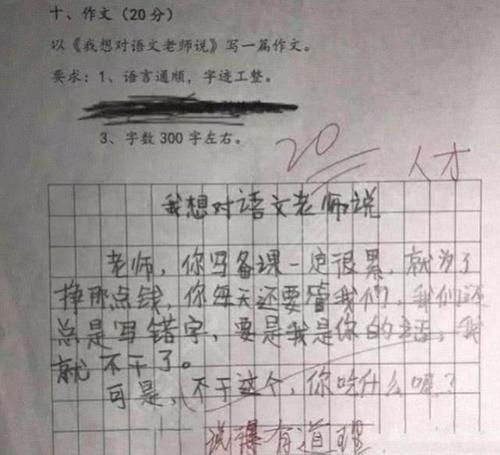 十、作文（20分）
以《我想对语文老师说》写一篇作文。
要求：1、语言通顺，字迹工整。
3、字数300字左右。
20
人才
我想对语文老师说
老师，你写备课一定很累，就为了
挣那点钱，你每天还要管我们，我们还
总是写错字，要是我是你的话，我
就不干了。
可是，不干这个，你吃什么呢？
说得有道理